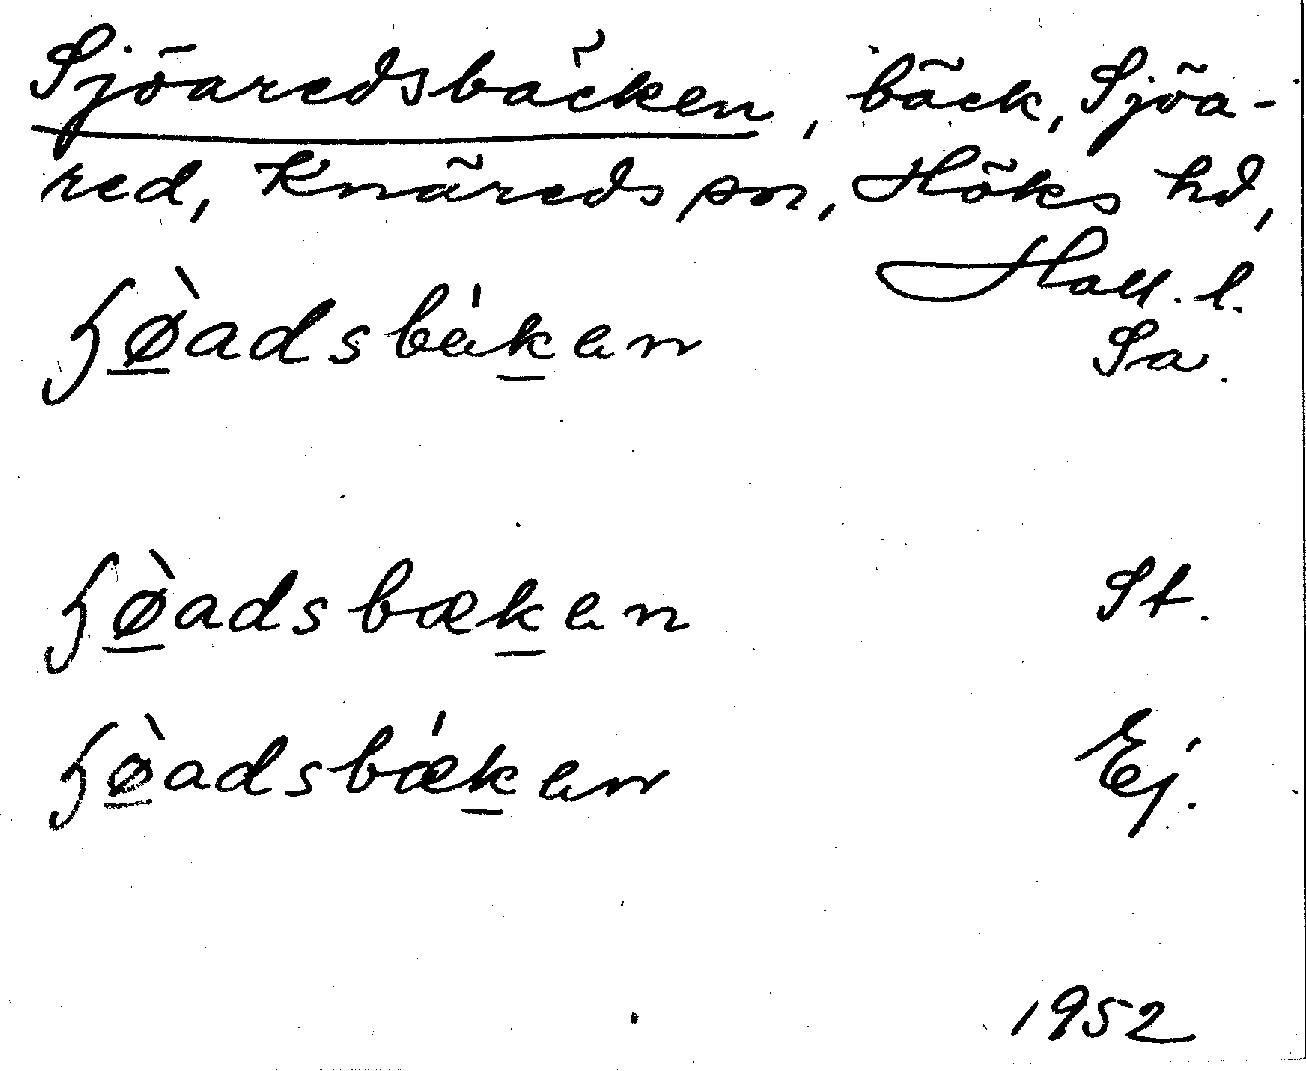 Sjöaredsbäcken, bäck, Sjöa-
red, Knäreds sn, Höks hd,
Hall. l.
ɧø̱̀adsbǽḵen Sa.
ɧø̱̀adsbæḵen St.
ɧø̱̀adsbǽḵen Ej.
1952